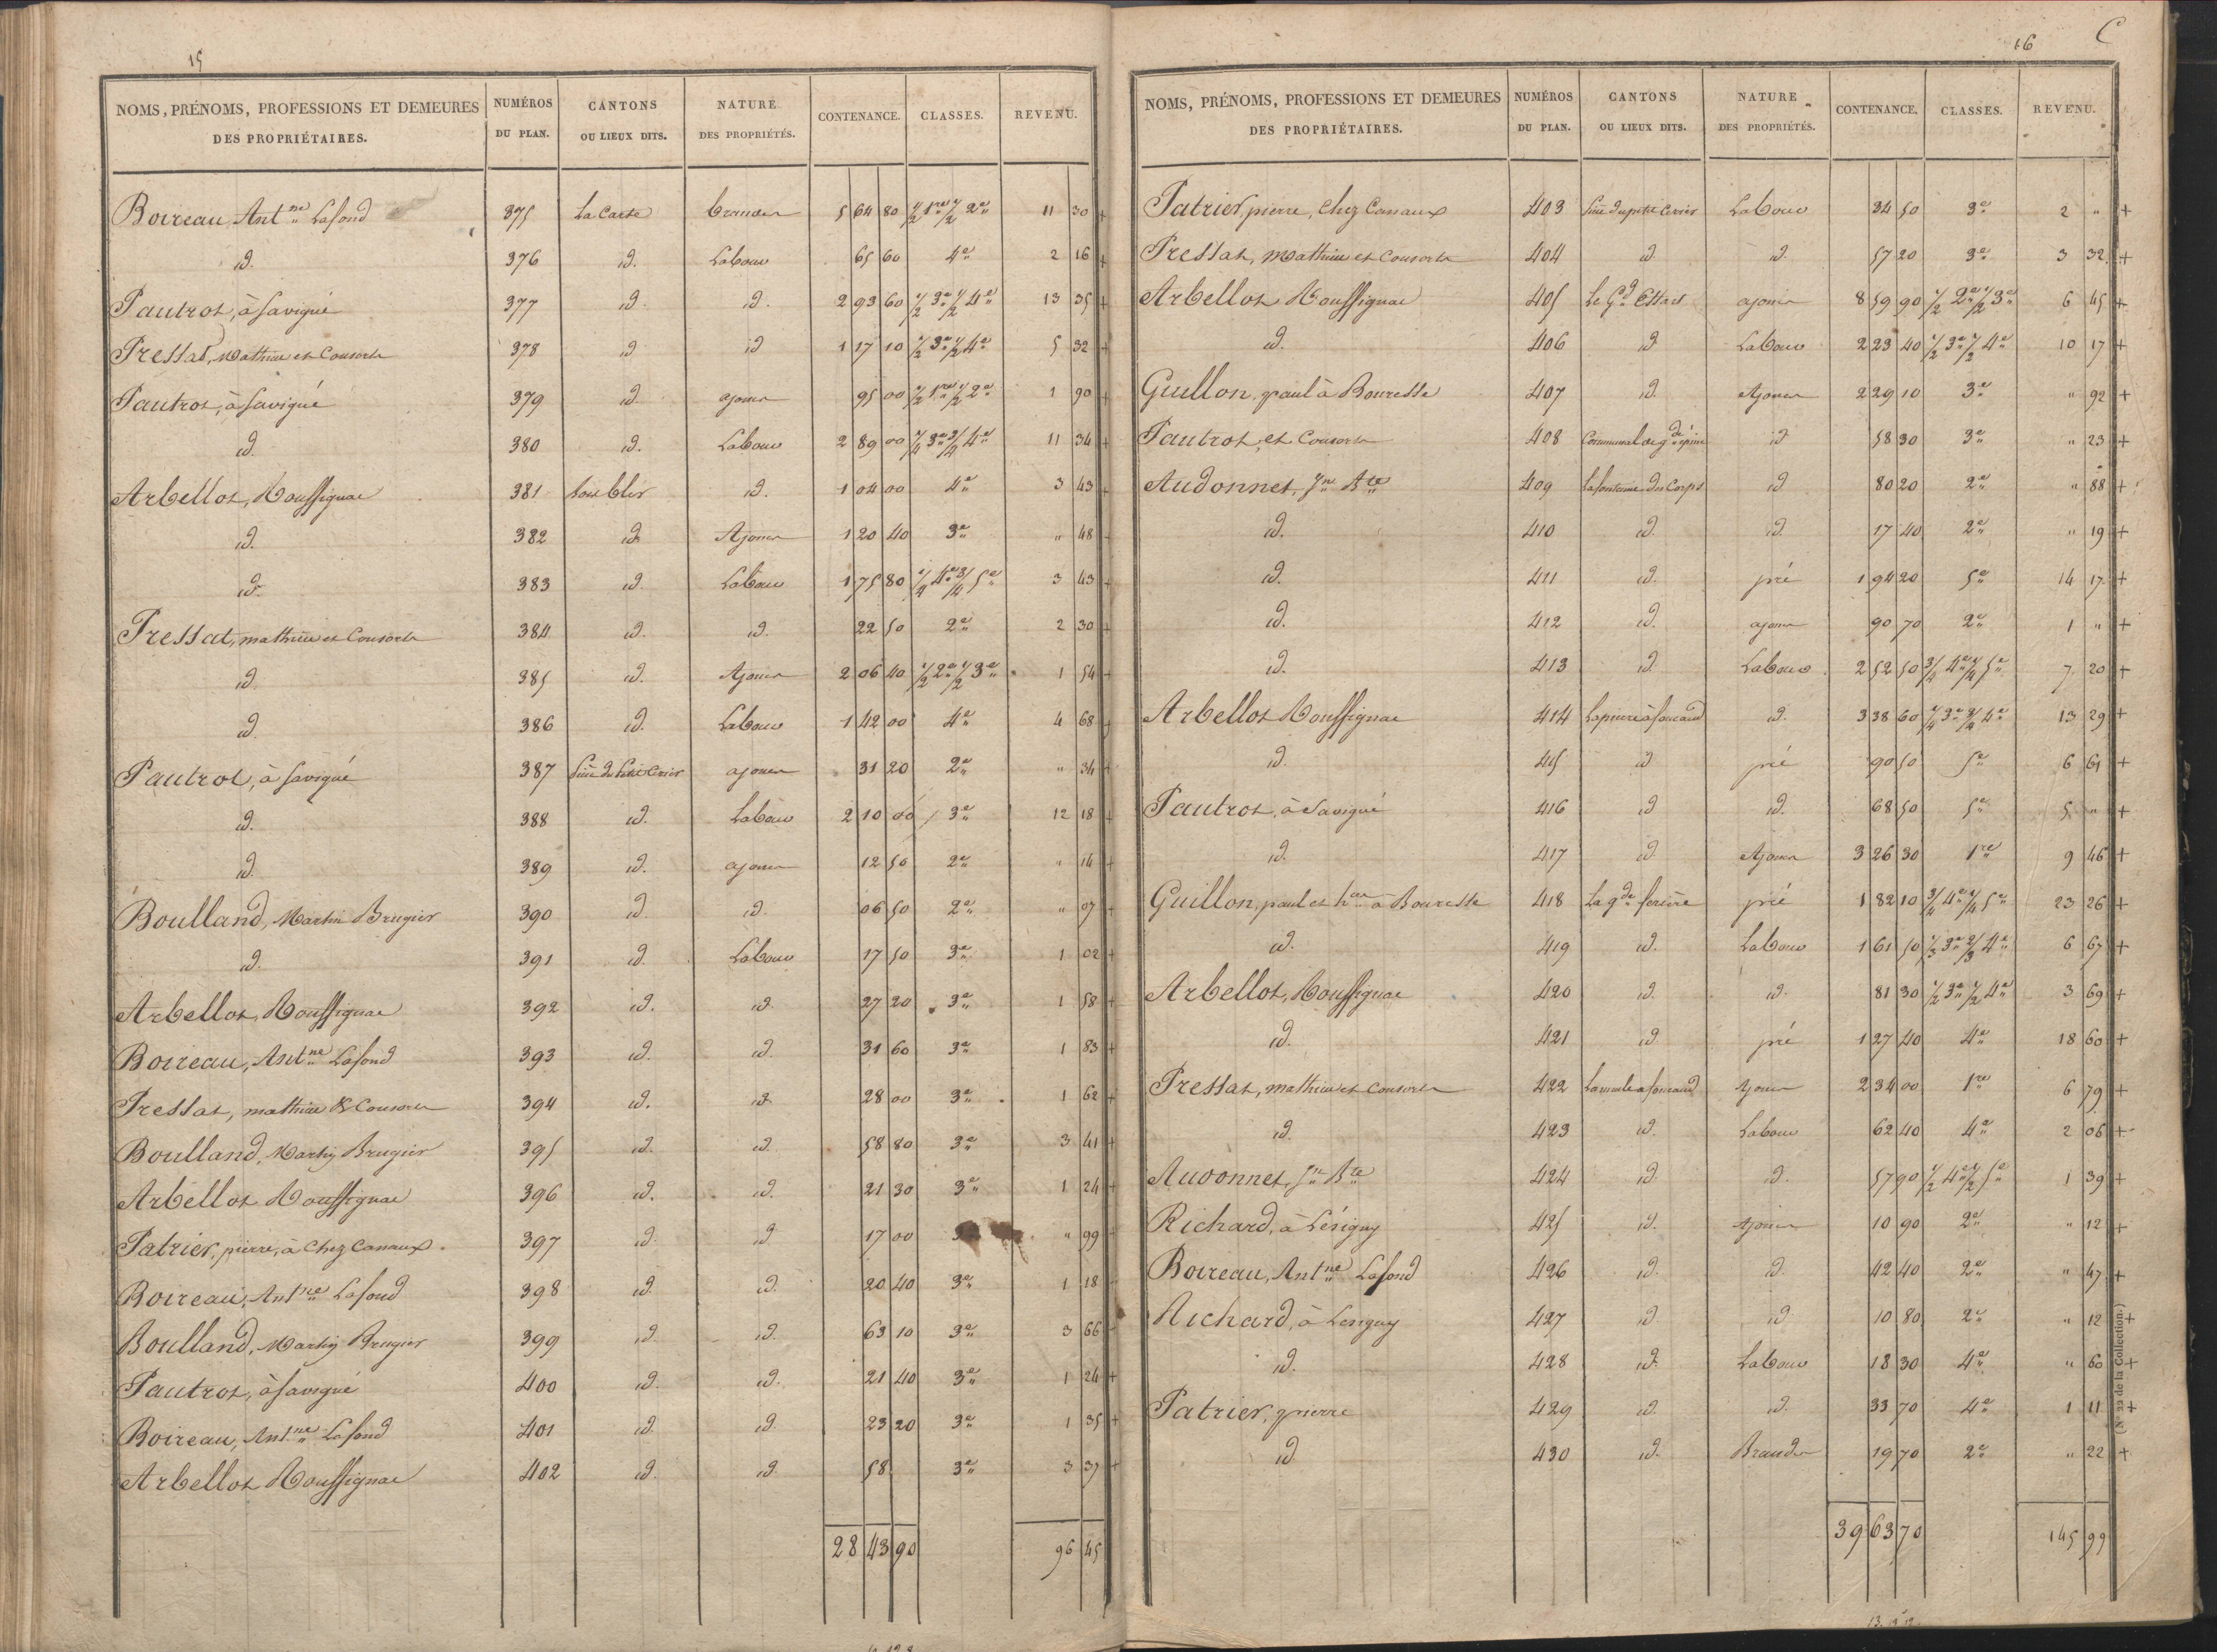 15
NOMS, PRÉNOMS, PROFESSIONS ET DEMEURES DES PROPRIÉTAIRES. NUMÉROS DU PLAN. CANTONS OU LIEUX DITS. NATURE DES PROPRIÉTÉS. CONTENANCE. CLASSES. REVENU.
Boireau Ant.ne Lafond 375 La Carte brandes 5 64 80 1/2 1re 1/2 2e 11 30 +
id. 376 id. Labour 65 60 4e 2 16 +
Pautrot, à Savigné 377 id. id. 2 93 60 1/2 3e 1/2 4e 13 35 +
Pressat, Mathieu et Consorts 378 id id 1 17 10 1/2 3e 1/2 4e 5 32 +
Pautrot, à Savigné 379 id. ajoncs 95 00 1/2 1re 1/2 2e 1 90 +
id. 380 id. Labour 2 89 00 1/4 3e 3/4 4e 11 34 +
Arbellot, Rouffignac 381 id. 1 04 00 4e 3 43 +
id. 382 id. Ajoncs 1 20 40 3e " 48 +
id. 383 id. Labour 1 75 80 1/4 4e 3/4 5e 3 43 +
Pressat, mathieu et Consorts 384 id. id. 22 50 2e 2 30 +
id 385 id. Ajoncs 2 06 40 1/2 2e 1/2 3e 1 54 +
id. 386 id. Labour 1 42 00 4e 4 68 +
Pautrot, à Savigné 387 ajoncs 31 20 2e " 34 +
id. 388 id. Labour 2 10 00 3e 12 18 +
id. 389 id. ajoncs 12 50 2e " 14 +
Boulland, Martin Brugier 390 id. id. 06 50 2e " 07 +
id. 391 id. Labour 17 50 3e 1 02 +
Arbellot, Rouffignac 392 id. id. 27 20 3e 1 58 +
Boireau, Ant.ne Lafond 393 id. id. 31 60 3e 1 83 +
Pressat, mathieu & Consorts 394 id. id. 28 00 3e 1 62 +
Boulland, Martin Brugier 395 id. id. 58 80 3e 3 41 +
Arbellot Rouffignac 396 id. id. 21 30 3e 1 24 +
Patrier, pierre, à Chez Canaux 397 id. id 17 00 " 99
Boireau, Ant.ne Lafond 398 id. id. 20 40 3e 1 18
Boulland, Martin Brugier 399 id. id. 63 10 3e 3 66
Pautrot, à Savigné 400 id. id. 21 40 3e 1 24 +
Boireau, Ant.ne Lafond 401 id. id. 23 20 3e 1 35 +
Arbellot Rouffignac 402 id. id 58 3e 3 37 +
28 43 90 96 45
16
C
NOMS, PRÉNOMS, PROFESSIONS ET DEMEURES DES PROPRIÉTAIRES. NUMÉROS DU PLAN. CANTONS OU LIEUX DITS. NATURE DES PROPRIÉTÉS. CONTENANCE. CLASSES. REVENU.
Patrier, pierre, Chez Canaux 403 Labour 34 50 3e 2 " +
Pressat, Mathieu et Consorts 404 id. id. 57 20 3e 3 32 +
Arbellot Rouffignac 405 Le Gd Essart ajoncs 8 59 90 1/2 2e 1/2 3e 6 45 +
id. 406 id Labour 2 23 40 1/2 3e 1/2 4e 10 17 +
Guillon, paul à Bouresse 407 id. Ajoncs 2 29 10 3e " 92 +
Pautrot, et Consorts 408 Communal de gde épine id 58 30 3e " 23 +
Audonnet, Jn Bte 409 La fontaine des Corps id 80 20 2e " 88 +
id. 410 id. id. 17 40 2e " 19 +
id. 411 id. pré 1 94 20 5e 14 17 +
id. 412 id. ajoncs 90 70 2e 1 " +
id. 413 id. Labour 2 52 50 3/4 4e 1/4 5e 7 20 +
Arbellot Rouffignac 414 id. 3 38 60 1/4 3e 3/4 4e 13 29 +
id. 415 id pré 90 50 5e 6 61 +
Pautrot, à Savigné 416 id id. 68 50 5e 5 " +
id. 417 id Ajoncs 3 26 30 1re 9 46 +
Guillon, paul et à Bouresse 418 La gde pré 1 82 10 3/4 4e 1/4 5e 23 26 +
id. 419 id. Labour 1 61 50 1/3 3e 2/3 4e 6 67 +
Arbellot, Rouffignac 420 id. id. 81 30 1/2 3e 1/2 4e 3 69 +
id. 421 id pré 1 27 40 4e 18 60 +
Pressat, mathieu et Consorts 422 Ajoncs 2 34 00 1re 6 79 +
id. 423 id. Labour 62 40 4e 2 06 +
Audonnet, Jn Bte 424 id. id. 57 90 1/2 4e 1/2 5e 1 39 +
Richard, à Lésigny 425 id. Ajoncs 10 90 2e " 12 +
Boireau, Ant.ne Lafond 426 id. id 42 40 2e " 47 +
Richard, à Lesigny 427 id id 10 80 2e " 12 +
id. 428 id. Labour 18 30 4e " 60 +
Patrier, pierre 429 id. id. 33 70 4e 1 11 +
id 430 id. Brandes 19 70 2e " 22 +
39 63 70 145 99
(N° 22 de la Collection.)